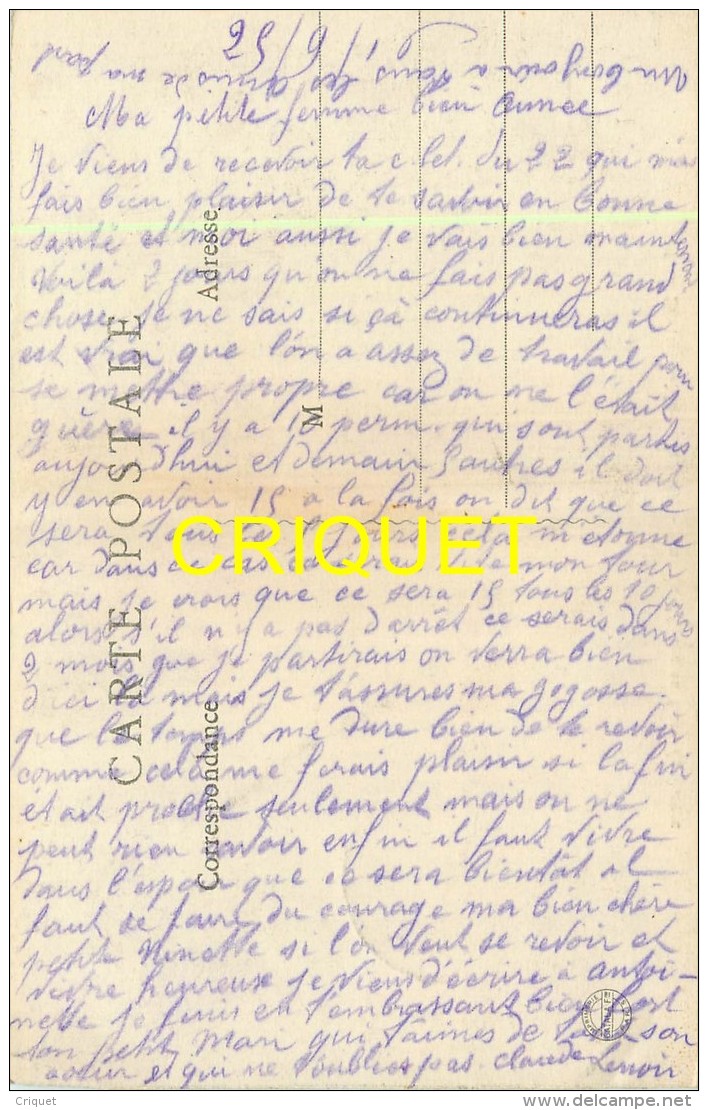 un bonjour a tous les amis de ma part
25/9/1
Ma petite femme bien aimée
Je viens de recevoir ta c. let. du 22 qui m'as
fais bien plaisir de te savoir en bonne
santé et moi aussi je vais bien maintenant
Voilà 2 jours qu'on ne fais pas grand
chose, je ne sais si çà continueras il
est vrai que l'on a assez de travail pour
se mettre propre car on ne l'était
guère il y a perm. qui sont partis
aujourd'hui et demain 5 autres il doit
y en avoir 15 a la fois on dit que ce
sera tous les jours cela m'étonne
car dans ce cas mon tour
mais je crois que ce sera 15 tous les 10 jours
alors s'il n'y a pas d'arrêt ce serais dans
2 mois que je partirais on verra bien
d'ici là mais je t'assures ma gogosse
que le temps me dure bien de te revoir
comme cela me ferais plaisir si la fin
était proche seulement mais on ne
peut rien savoir enfin il faut vivre
dans l'espoir que ce sera bientôt il
faut se faire du courage ma bien chère
petite Ninette si l'on veut se revoir et
vivre heureuse je viens d'écrire à Antoi-
nette je finis en t'embrassant bien fort
ton petit Mari qui t'aimes de tout son
coeur et qui ne t'oublies pas. Claude Lenoir
CARTE POSTALE
Correspondance
Adresse
M
CRIQUET
http://www.delcampe.net
Criquet